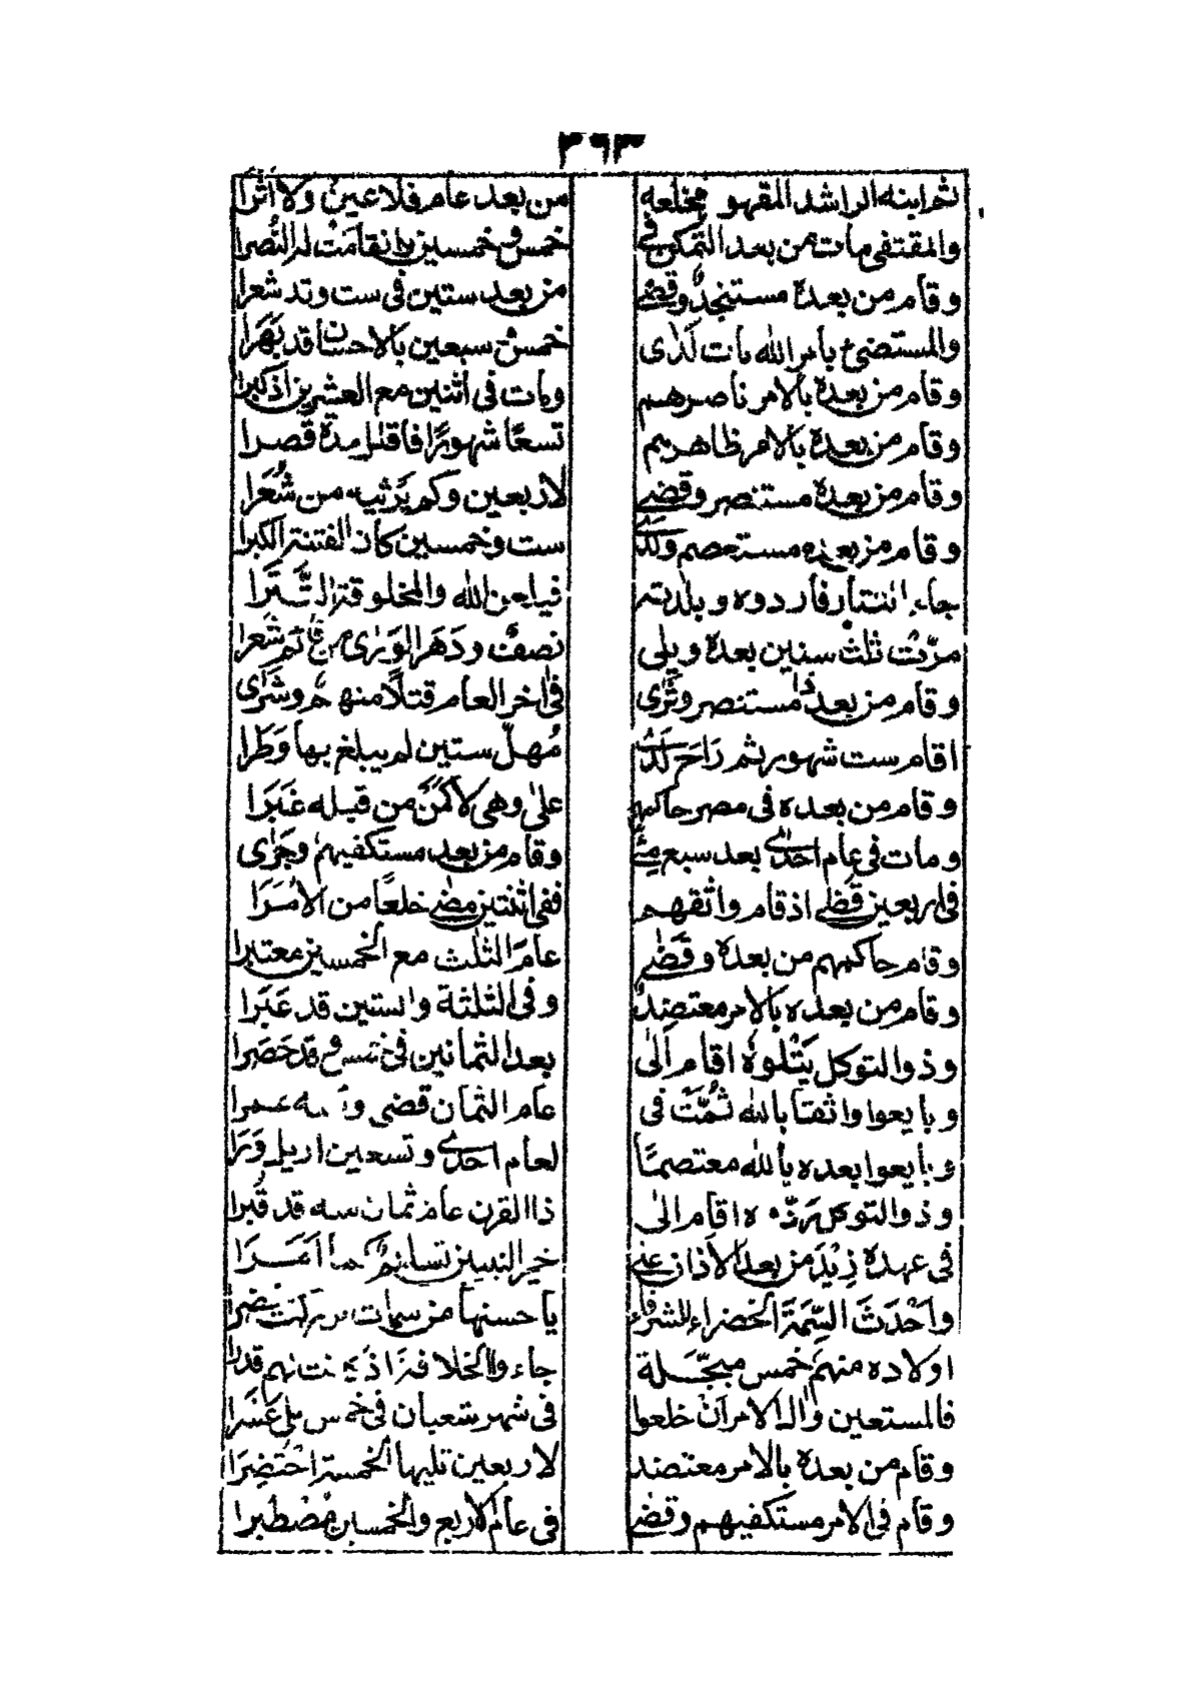 ٣٦٣
ثم ابنه الراشد المقهور مخلعه من بعد عام فلا عين ولا أثرا
والمقتفى مات من بعد التمكن في خمس وخمسين وانقامت له النصرا
وقام من بعده مستنجد وقضى من بعد ستين في ست وقد شعرا
والمستضئ بأمر الله مات لدى خمس وسبعين بالاحسان قد بهرا
وقام من بعده بالامر ناصرهم ومات في اثنين مع العشرين اذ كبرا
وقام من بعده بالامر ظاهرهم تسعا شهورا فاقلل مدة قصرا
وقام من بعده مستنصر وقضى لاربعين وكم يرثيه من شعرا
وقام من بعده مستعصم ولدى ست وخمسين كان الفتنة الكبرا
جاء التتار فاردوه وبلدته فيلعن الله والمخلوقة التترا
مرت ثلث سنين بعده ويلى نصف ودهر الورى من قائم شعرا
وقام من بعد ذا مستنصر وثرى في اخر العام قتلا منهم وشرى
اقام ست شهور ثم راح لدى مهل ستين لم يبلغ بها وطرا
وقام من بعده في مصر حاكمهم على وهى لا كمن من قبله غبرا
ومات في عام احدى بعد سبع مئ وقام من بعد مستكفيهم وجرى
في اربعين قضى اذ قام واثقهم ففي اثنتين مضى خلعا من الامرا
وقام حاكمهم من بعده وقضى عام الثلث مع الخمسين معتبرا
وقام من بعده بالامر معتضد وفي الثلثة والستين قد عبرا
وذو التوكل يتلوه اقام الى بعد الثمانين في خمس وقد حصرا
وبايعوا واثقا بالله ثمت في عام الثمان قضى
وبايعوا بعده بالله معتصما لعام احدى وتسعين ازيل ورا
وذو التوكل رده ه اقام الى ذا القرن عام ثمان سه قد قبرا
في عهده زيد من بعد الاذان على خير النبيين تسليم كما امرا
واحدث السمة الخضراء للشرفاء يا حسنها من سمات
اولاده منهم خمس مبجلة جاء والخلافة اذ
فالمستعين وال الامر ان خلعوا في شهر شعبان في خمس تلى عشرا
وقام من بعده بالامر معتضد لاربعين تليها الخمسة احتضرا
وقام في الامر مستكفيهم وقضى في عام الاربع والخمسين مصطبرا